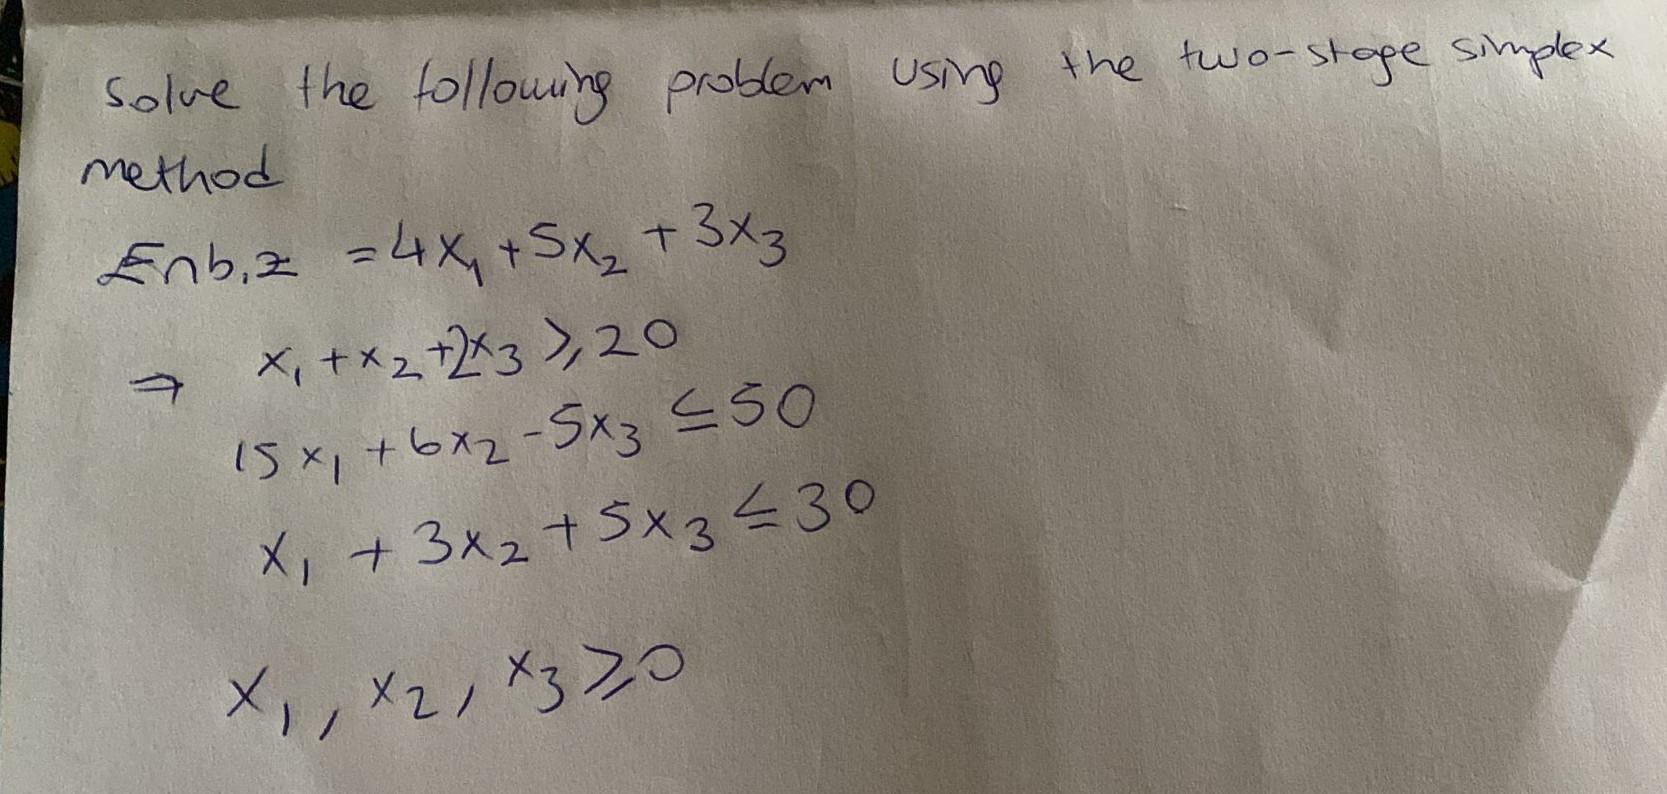 Solve the following problem using the two-stage simplex
method
Enb.z = 4x₁ + 5x₂ + 3x₃
⇒ x₁ + x₂ + 2x₃ ≥ 20
15x₁ + 6x₂ - 5x₃ ≤ 50
x₁ + 3x₂ + 5x₃ ≤ 30
x₁, x₂, x₃ ≥ 0